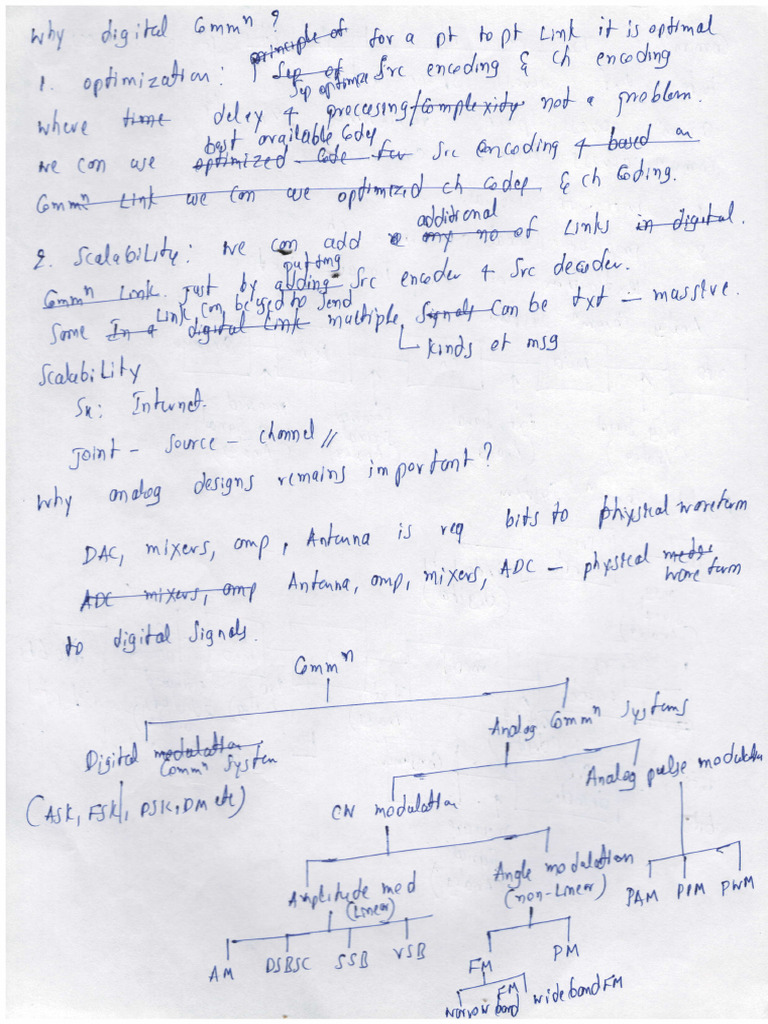 Why digital Commⁿ ?
1. optimization: principle of for a pt to pt Link it is optimal
Sep of Src encoding & ch encoding
Sep optimiz
where time delay & processing/complexity not a problem.
best available Codes
we can use optimized code for Src encoding & based on
Commⁿ Link we can use optimized ch Codes & ch Coding.
additional
2. Scalability: we can add a any no of Links in digital.
putting
Commⁿ Link. just by adding Src encoder & Src decoder.
Link can be used to send
Some In a digital Link multiple Signals can be txt — massive.
kinds of msg
Scalability
Sx: Internet.
Joint - Source - channel //
Why analog designs remains important?
DAC, mixers, amp, Antenna is req bits to physical waveform
ADC mixers, amp Antenna, amp, mixers, ADC - physical
wave form
to digital Signals.
Commⁿ
Digital modulation
Commⁿ System
Analog Commⁿ Systems
(ASK, FSK, PSK, DM etc)
CW modulation
Analog pulse modulation
Amplitude mod
(Linear)
Angle modulation
(non-Linear)
PAM PPM PWM
AM DSBSC SSB VSB
FM PM
Narrow band FM
wide band FM